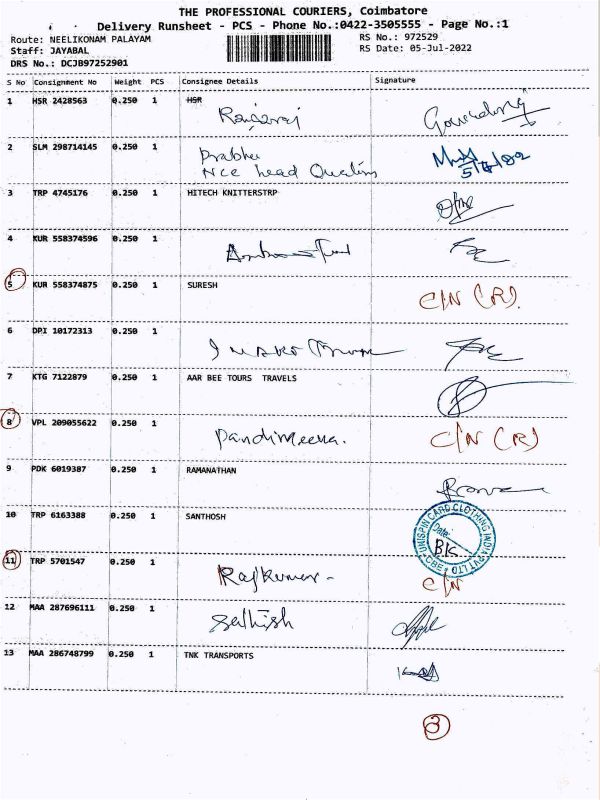 THE PROFESSIONAL COURIERS, Coimbatore
Delivery Runsheet - PCS - Phone No.:0422-3505555 - Page No.:1
Route: NEELIKONAM PALAYAM RS No.: 972529
Staff: JAYABAL RS Date: 05-Jul-2022
DRS No.: DCJB97252901
S No Consignment No Weight PCS Consignee Details Signature
1 HSR 2428563 0.250 1 HSR
2 SLM 298714145 0.250 1 Prabhu
Nce head Quaters
3 TRP 4745176 0.250 1 HITECH KNITTERSTRP
4 KUR 558374596 0.250 1
5 KUR 558374875 0.250 1 SURESH C/N (R).
6 DPI 10172313 0.250 1
7 KTG 7122879 0.250 1 AAR BEE TOURS TRAVELS
8 VPL 209055622 0.250 1 Pandimeena. C/N (R)
9 PDK 6019387 0.250 1 RAMANATHAN
10 TRP 6163388 0.250 1 SANTHOSH
UNISPIN CARD CLOTHING INDIA PVT LTD CBE
Date:
11 TRP 5701547 0.250 1 Rajkumar - C/N
12 MAA 287696111 0.250 1 Sathish
13 MAA 286748799 0.250 1 TNK TRANSPORTS
3